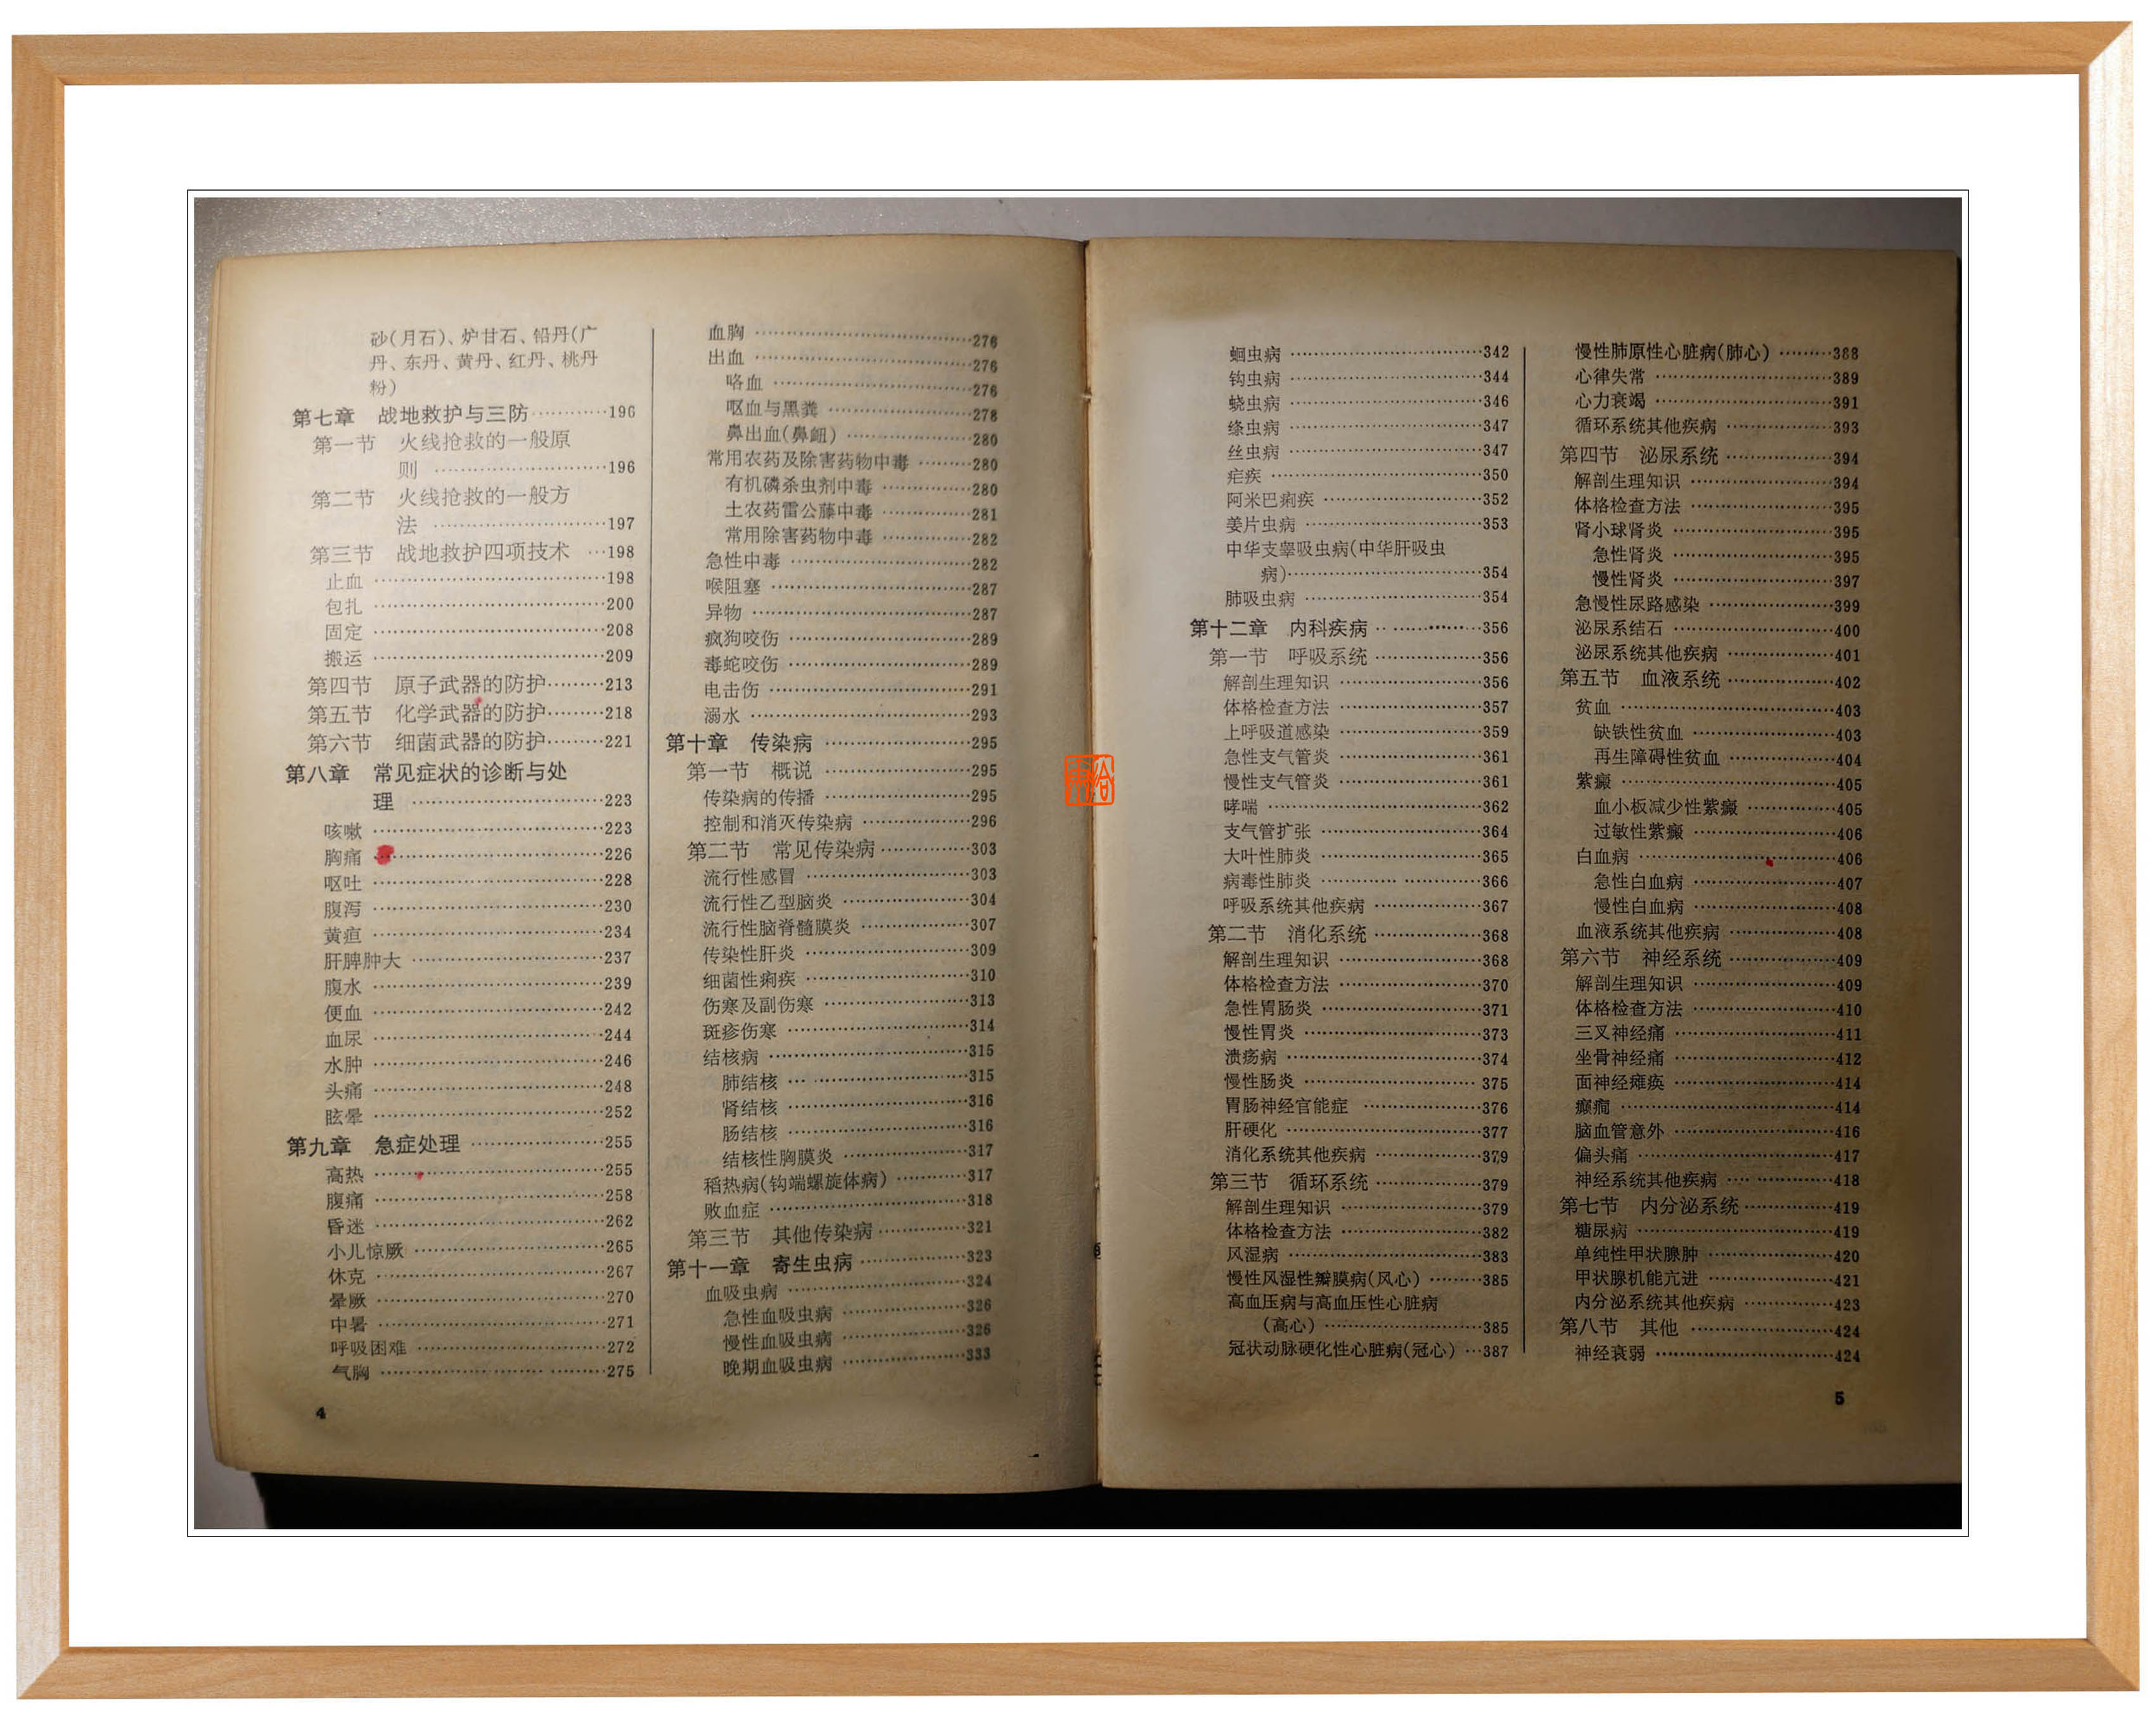 砂(月石)、炉甘石、铅丹(广
丹、东丹、黄丹、红丹、桃丹
粉)
第七章 战地救护与三防…………196
第一节 火线抢救的一般原
则 …………………………196
第二节 火线抢救的一般方
法 …………………………197
第三节 战地救护四项技术 …198
止血 …………………………………198
包扎 …………………………………200
固定 …………………………………208
搬运 …………………………………209
第四节 原子武器的防护………213
第五节 化学武器的防护………218
第六节 细菌武器的防护………221
第八章 常见症状的诊断与处
理 ……………………………223
咳嗽 …………………………………223
胸痛 …………………………………226
呕吐 …………………………………228
腹泻 …………………………………230
黄疸 …………………………………234
肝脾肿大 ……………………………237
腹水 …………………………………239
便血 …………………………………242
血尿 …………………………………244
水肿 …………………………………246
头痛 …………………………………248
眩晕 …………………………………252
第九章 急症处理 …………………255
高热 …………………………………255
腹痛 …………………………………258
昏迷 …………………………………262
小儿惊厥 ……………………………265
休克 …………………………………267
晕厥 …………………………………270
中暑 …………………………………271
呼吸困难 ……………………………272
气胸 …………………………………275
4
血胸 …………………………………276
出血 …………………………………276
咯血 ………………………………276
呕血与黑粪 ………………………278
鼻出血(鼻衄) ……………………280
常用农药及除害药物中毒 ………280
有机磷杀虫剂中毒 ……………280
土农药雷公藤中毒 ……………281
常用除害药物中毒 ……………282
急性中毒 ……………………………282
喉阻塞 ………………………………287
异物 …………………………………287
疯狗咬伤 ……………………………289
毒蛇咬伤 ……………………………289
电击伤 ………………………………291
溺水 …………………………………293
第十章 传染病 ……………………295
第一节 概说 ……………………295
传染病的传播 ……………………295
控制和消灭传染病 ………………296
第二节 常见传染病……………303
流行性感冒 ………………………303
流行性乙型脑炎 …………………304
流行性脑脊髓膜炎 ………………307
传染性肝炎 ………………………309
细菌性痢疾 ………………………310
伤寒及副伤寒 ……………………313
斑疹伤寒 …………………………314
结核病 ………………………………315
肺结核 … ………………………315
肾结核 ……………………………316
肠结核 ……………………………316
结核性胸膜炎 ……………………317
稻热病(钩端螺旋体病) …………317
败血症 ………………………………318
第三节 其他传染病……………321
第十一章 寄生虫病……………323
血吸虫病 ……………………………324
急性血吸虫病 ……………………326
慢性血吸虫病 ……………………326
晚期血吸虫病 ……………………333
蛔虫病 ………………………………342
钩虫病 ………………………………344
蛲虫病 ………………………………346
绦虫病 ………………………………347
丝虫病 ………………………………347
疟疾 …………………………………350
阿米巴痢疾 …………………………352
姜片虫病 ……………………………353
中华支睾吸虫病(中华肝吸虫
病)……………………………354
肺吸虫病 ……………………………354
第十二章 内科疾病 ………………356
第一节 呼吸系统 ………………356
解剖生理知识 ………………………356
体格检查方法 ………………………357
上呼吸道感染 ………………………359
急性支气管炎 ………………………361
慢性支气管炎 ………………………361
哮喘 …………………………………362
支气管扩张 …………………………364
大叶性肺炎 …………………………365
病毒性肺炎 …………………………366
呼吸系统其他疾病 …………………367
第二节 消化系统 ………………368
解剖生理知识 ………………………368
体格检查方法 ………………………370
急性胃肠炎 …………………………371
慢性胃炎 ……………………………373
溃疡病 ………………………………374
慢性肠炎 ……………………………375
胃肠神经官能症 ……………………376
肝硬化 ………………………………377
消化系统其他疾病 …………………379
第三节 循环系统 ………………379
解剖生理知识 ………………………379
体格检查方法 ………………………382
风湿病 ………………………………383
慢性风湿性瓣膜病(风心) ………385
高血压病与高血压性心脏病
(高心) …………………………385
冠状动脉硬化性心脏病(冠心) …387
慢性肺原性心脏病(肺心) ………388
心律失常 ……………………………389
心力衰竭 ……………………………391
循环系统其他疾病 …………………393
第四节 泌尿系统 ………………394
解剖生理知识 ………………………394
体格检查方法 ………………………395
肾小球肾炎 …………………………395
急性肾炎 …………………………395
慢性肾炎 …………………………397
急慢性尿路感染 ……………………399
泌尿系结石 …………………………400
泌尿系统其他疾病 …………………401
第五节 血液系统 ………………402
贫血 …………………………………403
缺铁性贫血 ………………………403
再生障碍性贫血 …………………404
紫癜 …………………………………405
血小板减少性紫癜 ………………405
过敏性紫癜 ………………………406
白血病 ………………………………406
急性白血病 ………………………407
慢性白血病 ………………………408
血液系统其他疾病 …………………408
第六节 神经系统 ………………409
解剖生理知识 ………………………409
体格检查方法 ………………………410
三叉神经痛 …………………………411
坐骨神经痛 …………………………412
面神经瘫痪 …………………………414
癫痫 …………………………………414
脑血管意外 …………………………416
偏头痛 ………………………………417
神经系统其他疾病 …………………418
第七节 内分泌系统 ……………419
糖尿病 ………………………………419
单纯性甲状腺肿 ……………………420
甲状腺机能亢进 ……………………421
内分泌系统其他疾病 ………………423
第八节 其他 ……………………424
神经衰弱 ……………………………424
5